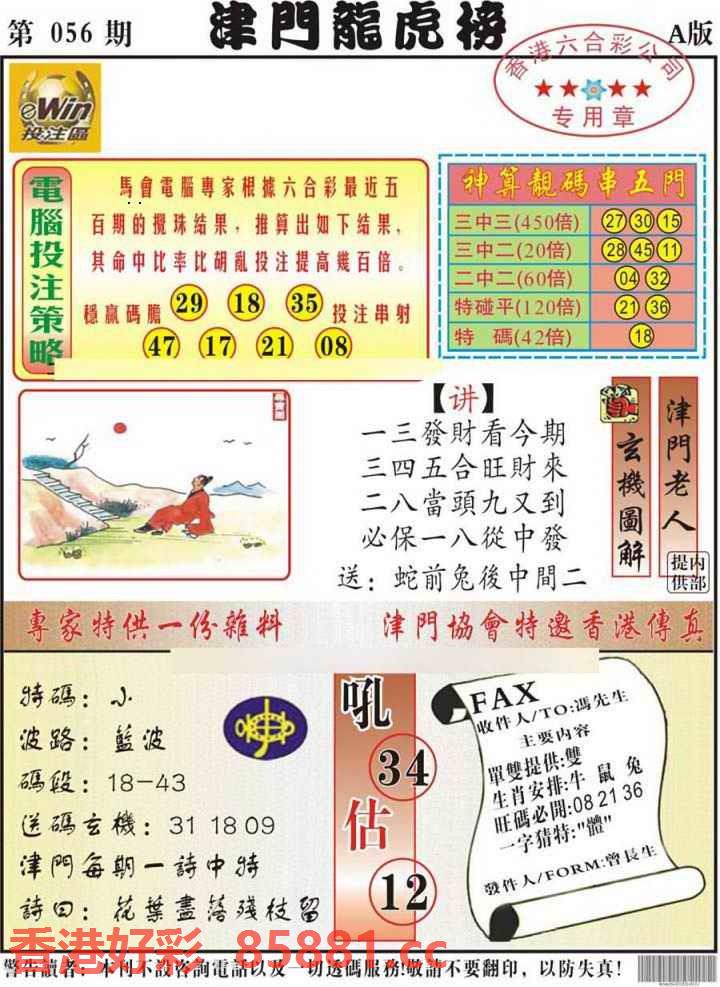 第 056 期
津門龍虎榜
A版
香港六合彩公司
★★★★
专用章
eWin
投注區
電腦投注策略
馬會電腦專家根據六合彩最近五
百期的攪珠結果，推算出如下結果，
其命中比率比胡亂投注提高幾百倍。
穩贏碼膽 29 18 35 投注串射
47 17 21 08
神算靚碼串五門
三中三(450倍) 27 30 15
三中二(20倍) 28 45 11
二中二(60倍) 04 32
特碰平(120倍) 21 36
特 碼(42倍) 18
【讲】
一三發財看今期
三四五合旺財來
二八當頭九又到
必保一八從中發
送：蛇前兔後中間二
玄機圖解
津門老人
内部提供
專家特供一份雜料
津門協會特邀香港傳真
特碼：小
波路：藍波
碼段：18-43
送碼玄機：31 18 09
津門每期一詩中特
詩曰：花葉盡落殘枝留
吼
34
估
12
FAX
收件人/TO:馮先生
主要内容
單雙提供:雙
生肖安排:牛 鼠 兔
旺碼必開:08 21 36
一字猜特:"體"
發件人/FORM:曾長生
香港好彩 85881.cc
警告讀者：本刊不設咨詢電話以及一切透碼服務!敬請不要翻印，以防失真!